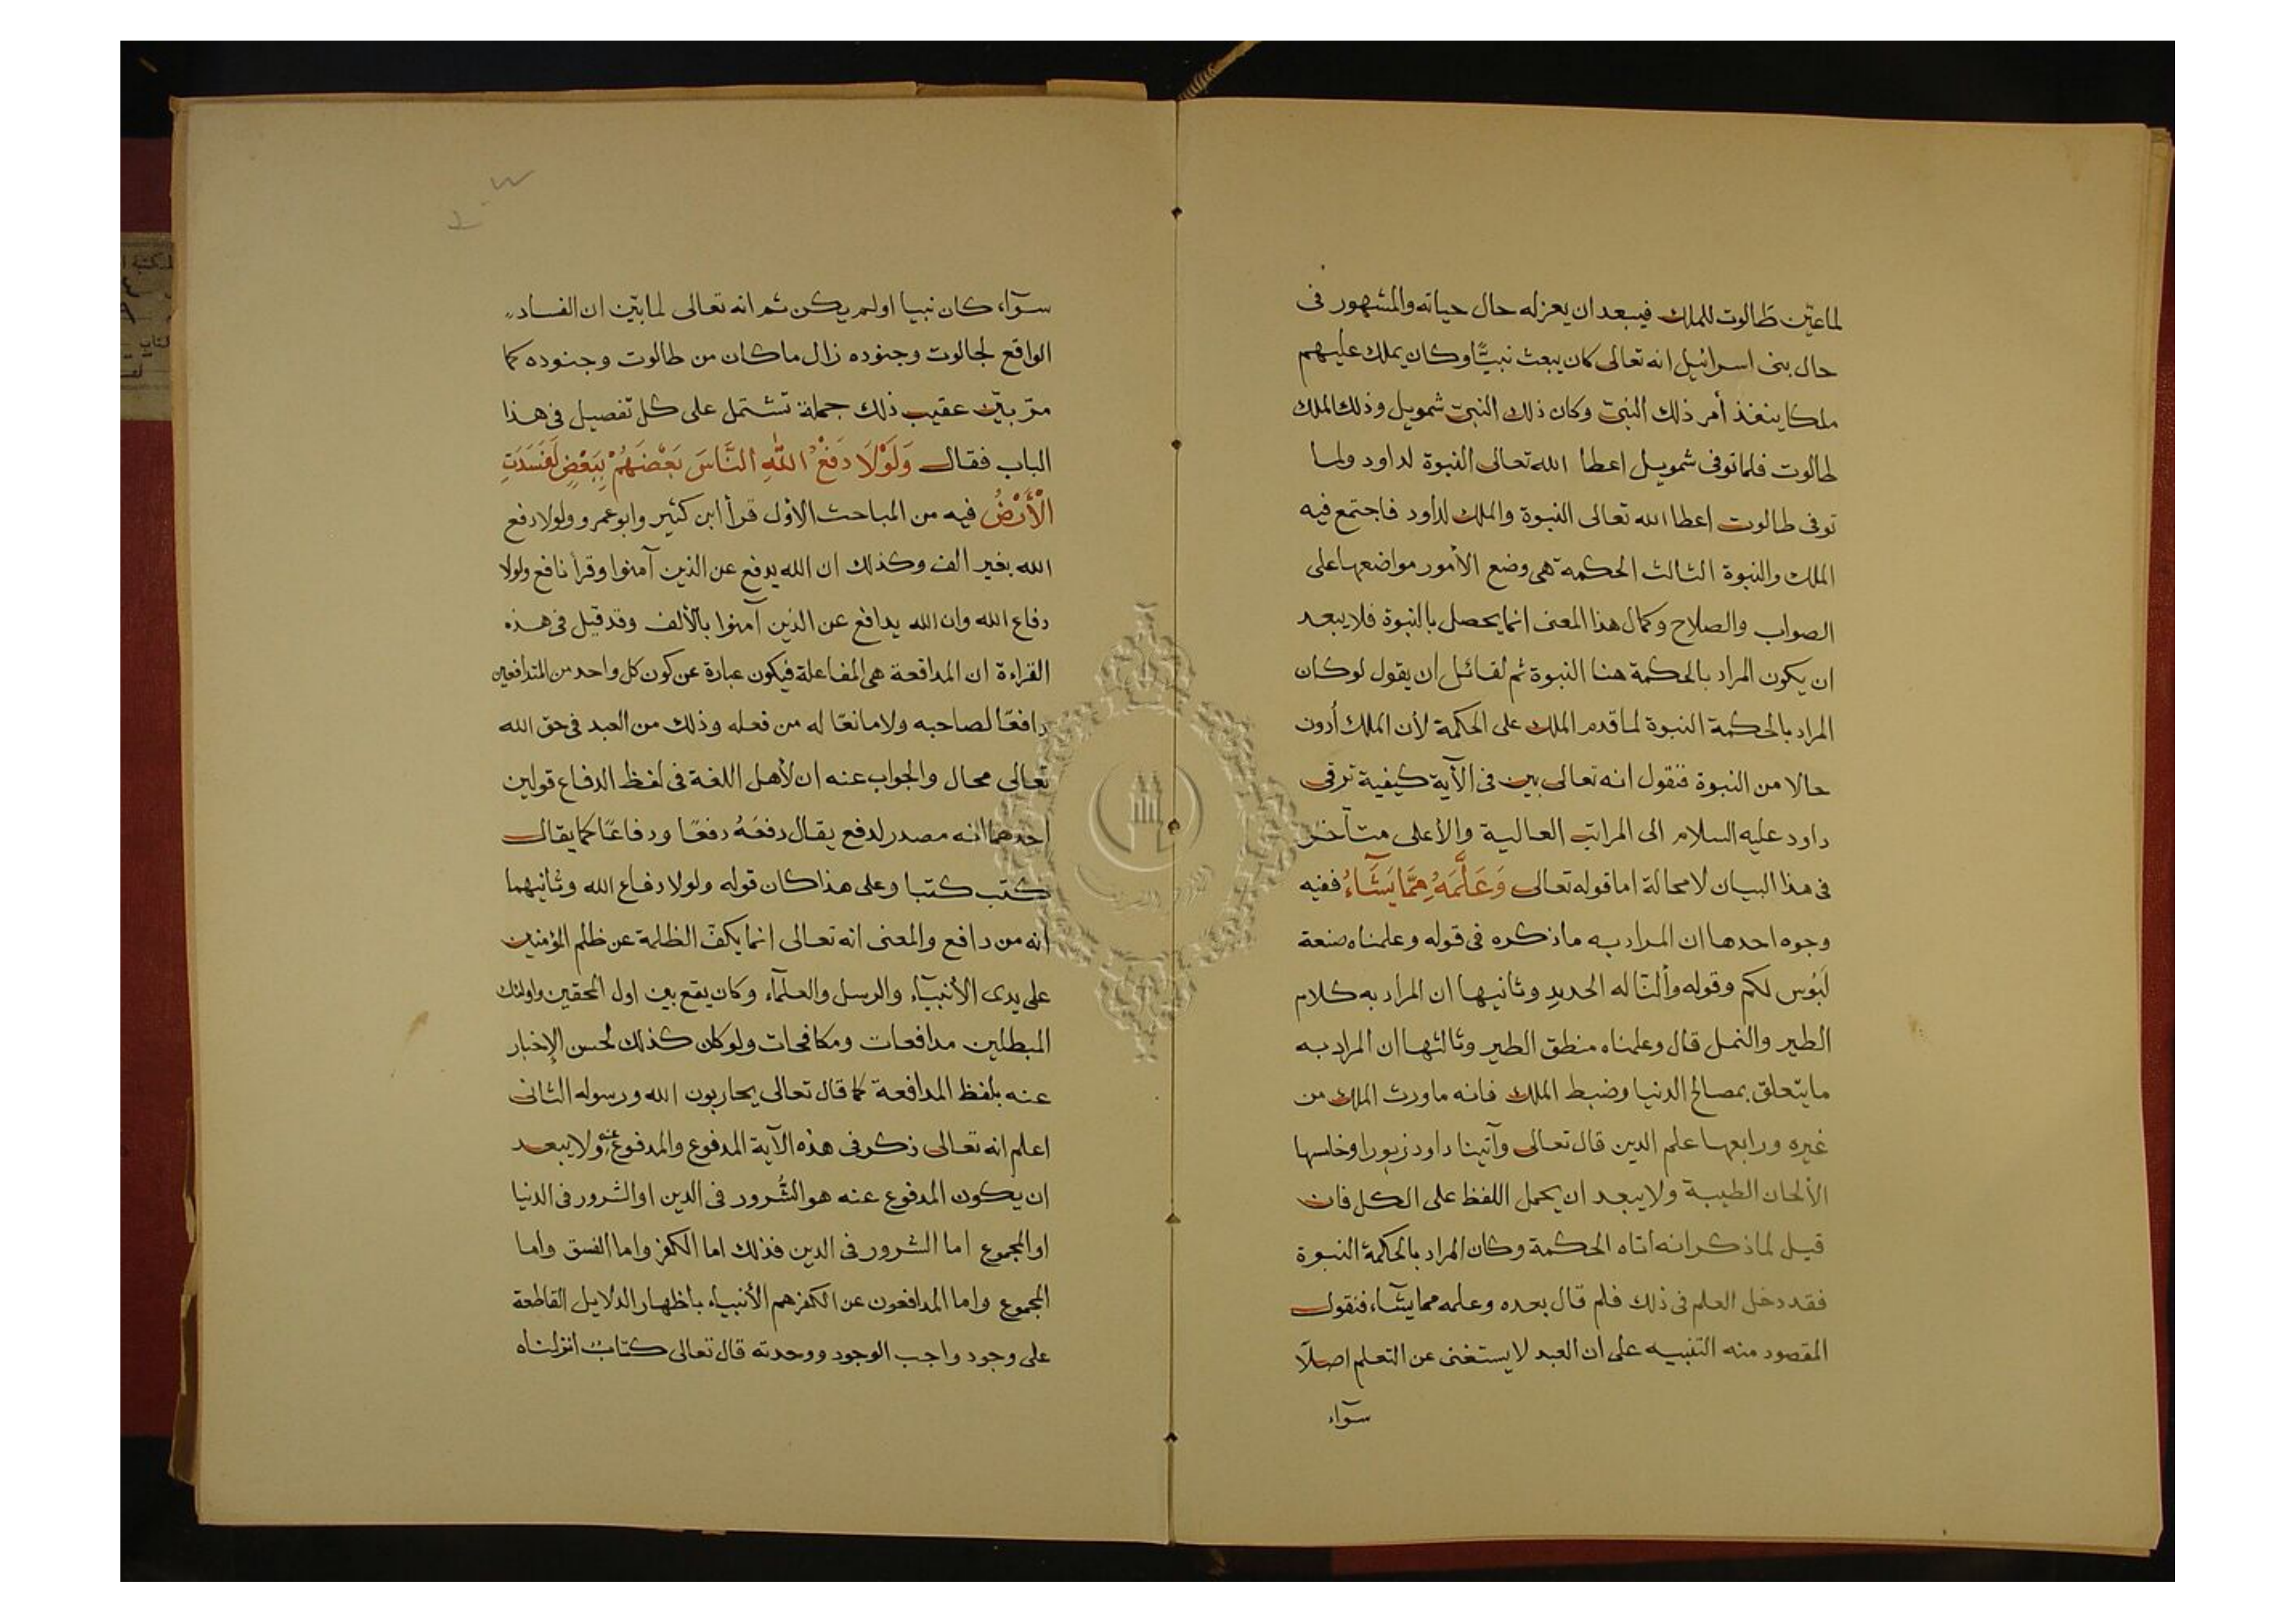 لما عيّن طالوت للملك فيبعد ان يعزله حال حياته والمشهور فى
حال بنى اسرائيل انه تعالى كان يبعث نبيًّا وكان يملك عليهم
ملكا ينفذ أمر ذلك النبىّ وكان ذلك النبىّ شمويل وذلك الملك
طالوت فلما توفى شمويل اعطا الله تعالى النبوة لداود ولما
توفى طالوت اعطا الله تعالى النبوة والملك لداود فاجتمع فيه
الملك والنبوة الثالث الحكمة هى وضع الأمور مواضعها على
الصواب والصلاح وكمال هذا المعنى انما يحصل بالنبوة فلا يبعد
ان يكون المراد بالحكمة هنا النبوة ثم لقائل ان يقول لو كان
المراد بالحكمة النبوة لما قدم الملك على الحكمة لأن الملك أدون
حالا من النبوة فنقول انه تعالى بين فى الآية كيفية ترقى
داود عليه السلام الى المراتب العالية والأعلى متأخر
فى هذا البيان لا محالة اما قوله تعالى وَعَلَّمَهُ مِمَّا يَشَآءُ ففيه
وجوه احدها ان المراد به ما ذكره فى قوله وعلمناه صنعة
لَبُوس لكم وقوله وألنّا له الحديد وثانيها ان المراد به كلام
الطير والنمل قال وعلمناه منطق الطير وثالثها ان المراد به
ما يتعلق بمصالح الدنيا وضبط الملك فانه ما ورث الملك من
غيره ورابعها علم الدين قال تعالى وآتينا داود زبورا وخامسها
الألحان الطيبة ولا يبعد ان يحمل اللفظ على الكل فان
قيل لما ذكر انه اتاه الحكمة وكان المراد بالحكمة النبوة
فقد دخل العلم فى ذلك فلم قال بعده وعلمه مما يشآء فنقول
المقصود منه التنبيه على ان العبد لا يستغنى عن التعلم اصلاً
سوآء
سوآء كان نبيا اولم يكن ثم انه تعالى لما بيّن ان الفساد
الواقع لجالوت وجنوده زال ما كان من طالوت وجنوده كما
مرّ بيّن عقيب ذلك جملة تشتمل على كل تفصيل فى هذا
الباب فقال وَلَوْلَا دَفْعُ اللّٰهِ النَّاسَ بَعْضَهُمْ بِبَعْضٍ لَفَسَدَتِ
الْأَرْضُ فيه من المباحث الأول قرأ ابن كثير وابو عمرو ولولا دفع
الله بغير الف وكذلك ان الله يدفع عن الذين آمنوا وقرأ نافع ولولا
دفاع الله وان الله يدافع عن الذين آمنوا بالألف وقد قيل فى هذه
القراءة ان المدافعة هى المفاعلة فيكون عبارة عن كون كل واحد من المتدافعين
دافعًا لصاحبه ولا مانعًا له من فعله وذلك من العبد فى حق الله
تعالى محال والجواب عنه ان لأهل اللغة فى لفظ الدفاع قولين
احدهما انه مصدر لدفع يقال دفعَهُ دفعًا ودفاعًا كما يقال
كتب كتبا وعلى هذا كان قوله ولولا دفاع الله وثانيهما
انه من دافع والمعنى انه تعالى انما يكفّ الظلمة عن ظلم المؤمنين
على يدى الأنبيآء والرسل والعلمآء وكان يقع بين اول المحقين واولئك
المبطلين مدافعات ومكافحات ولو كان كذلك لحسن الإخبار
عنه بلفظ المدافعة كما قال تعالى يحاربون الله ورسوله الثانى
اعلم انه تعالى ذكر فى هذه الآية المدفوع والمدفوع عنه ولا يبعد
ان يكون المدفوع عنه هو الشُّرور فى الدين او الشرور فى الدنيا
او المجموع اما الشرور فى الدين فذلك اما الكفر واما الفسق واما
المجموع واما المدافعون عن الكفر هم الأنبيآء باظهار الدلايل القاطعة
على وجود واجب الوجود ووحدته قال تعالى كتابٌ انزلناه